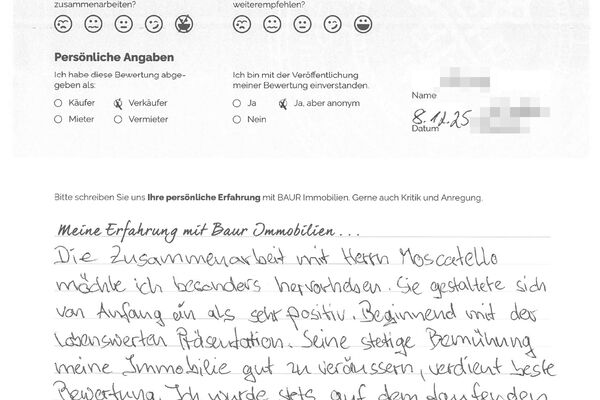 zusammenarbeiten?
weiterempfehlen?
Persönliche Angaben
Ich habe diese Bewertung abge-
geben als:
Ich bin mit der Veröffentlichung
meiner Bewertung einverstanden.
Käufer
Verkäufer
Ja
Ja, aber anonym
Mieter
Vermieter
Nein
Name
8.12.25
Datum
Bitte schreiben Sie uns Ihre persönliche Erfahrung mit BAUR Immobilien. Gerne auch Kritik und Anregung.
Meine Erfahrung mit Baur Immobilien...
Die Zusammenarbeit mit Herrn Moscatello
möchte ich besonders hervorheben. Sie gestaltete sich
von Anfang an als sehr positiv. Beginnend mit der
lobenswerten Präsentation. Seine stetige Bemühung
meine Immobilie gut zu veräussern, verdient beste
Bewertung. Ich wurde stets auf dem laufenden